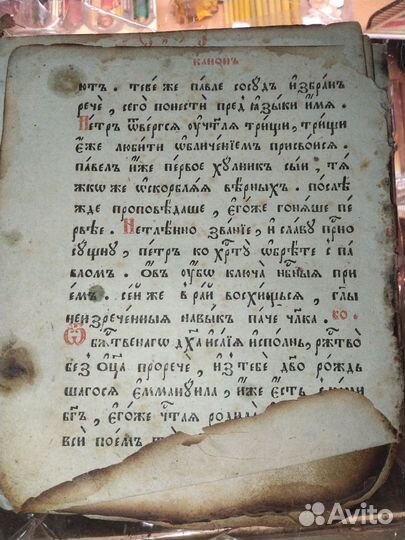 КАНОНЪ
ютъ . тебѣ же павле сосꙋдъ и҆збран
речѐ , сего̀ понести пред̾ ꙗ҆зыки и҆́мѧ .
Петръ ѿвергсѧ ᲂу҆чт҃лѧ три́щи , три́щи
є҆́же любити ѡ҆бличе́нїемъ присвоисѧ .
павелъ и҆́же первое хꙋлникъ сы́и , тѧ
жко же ѡ҆скорблѧѧ вѣ́рныхъ . послѣ́
жде проповѣ́даше , є҆го́же гонѧше пе́
рвѣе . Нетлѣ́нно зва́нїе , и҆ сла́вꙋ прⷭ҇но
сꙋщнꙋ , петръ ко хрⷭ҇тꙋ ѡ҆брѣ́те с па
вломъ . Ѻ҆въ ᲂу҆́бѡ ключа̀ нбⷭ҇ныѧ при
е́мъ . се́й же в ра́й восхи́щьсѧ , гл҃ы
неи҆зрече́нныѧ навы́къ па́че чл҃ка . ко .
Ѿ бжⷭ҇твенагѡ дх҃а и҆са́їѧ и҆спо́лнь , ржⷭ҇тво
без ѻ҆ц҃а̀ проречѐ , и҆з̾ тебѐ дв҃о ро́ждь
шагосѧ є҆ммануила , и҆́же є҆́сть
бг҃ъ , є҆го́же чт҃аѧ роди
вси̑ пое́мъ
Avito